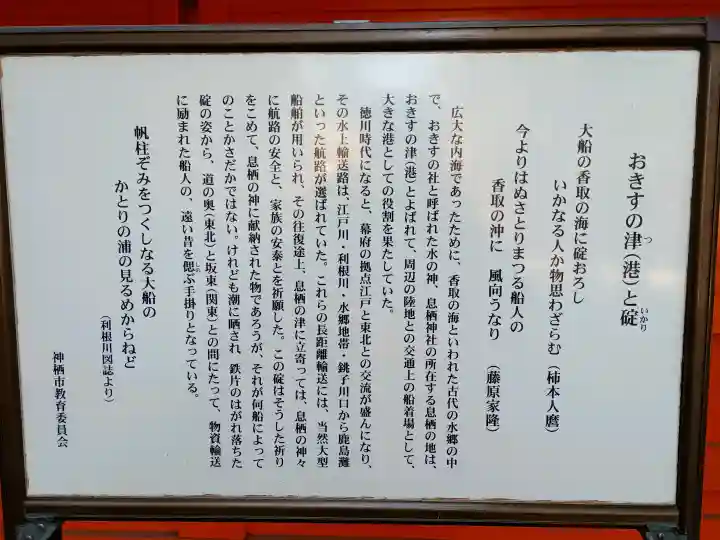 おきすの津(港)と碇
つ
いかり
大船の香取の海に碇おろし
いかなる人か物思わざらむ(柿本人麿)
今よりはぬさとりまつる船人の
香取の沖に 風向うなり (藤原家隆)
広大な内海であったために、香取の海といわれた古代の水郷の中
で、おきすの社と呼ばれた水の神、息栖神社の所在する息栖の地は、
おきすの津(港)とよばれて、周辺の陸地との交通上の船着場として、
大きな港としての役割を果たしていた。
徳川時代になると、幕府の拠点江戸と東北との交流が盛んになり、
その水上輸送路は、江戸川・利根川・水郷地帯・銚子川口から鹿島灘
といった航路が選ばれていた。これらの長距離輸送には、当然大型
船舶が用いられ、その往復途上、息栖の津に立寄っては、息栖の神々
に航路の安全と、家族の安泰とを祈願した。この碇はそうした祈り
をこめて、息栖の神に献納された物であろうが、それが何船によって
のことかさだかではない。けれども潮に晒され、鉄片のはがれ落ちた
碇の姿から、道の奥(東北)と坂東(関東)との間にたって、物資輸送
に励まれた船人の、遠い昔を偲ぶ手掛りとなっている。
しの
帆柱ぞみをつくしなる大船の
かとりの浦の見るめからねど
(利根川図誌より)
神栖市教育委員会